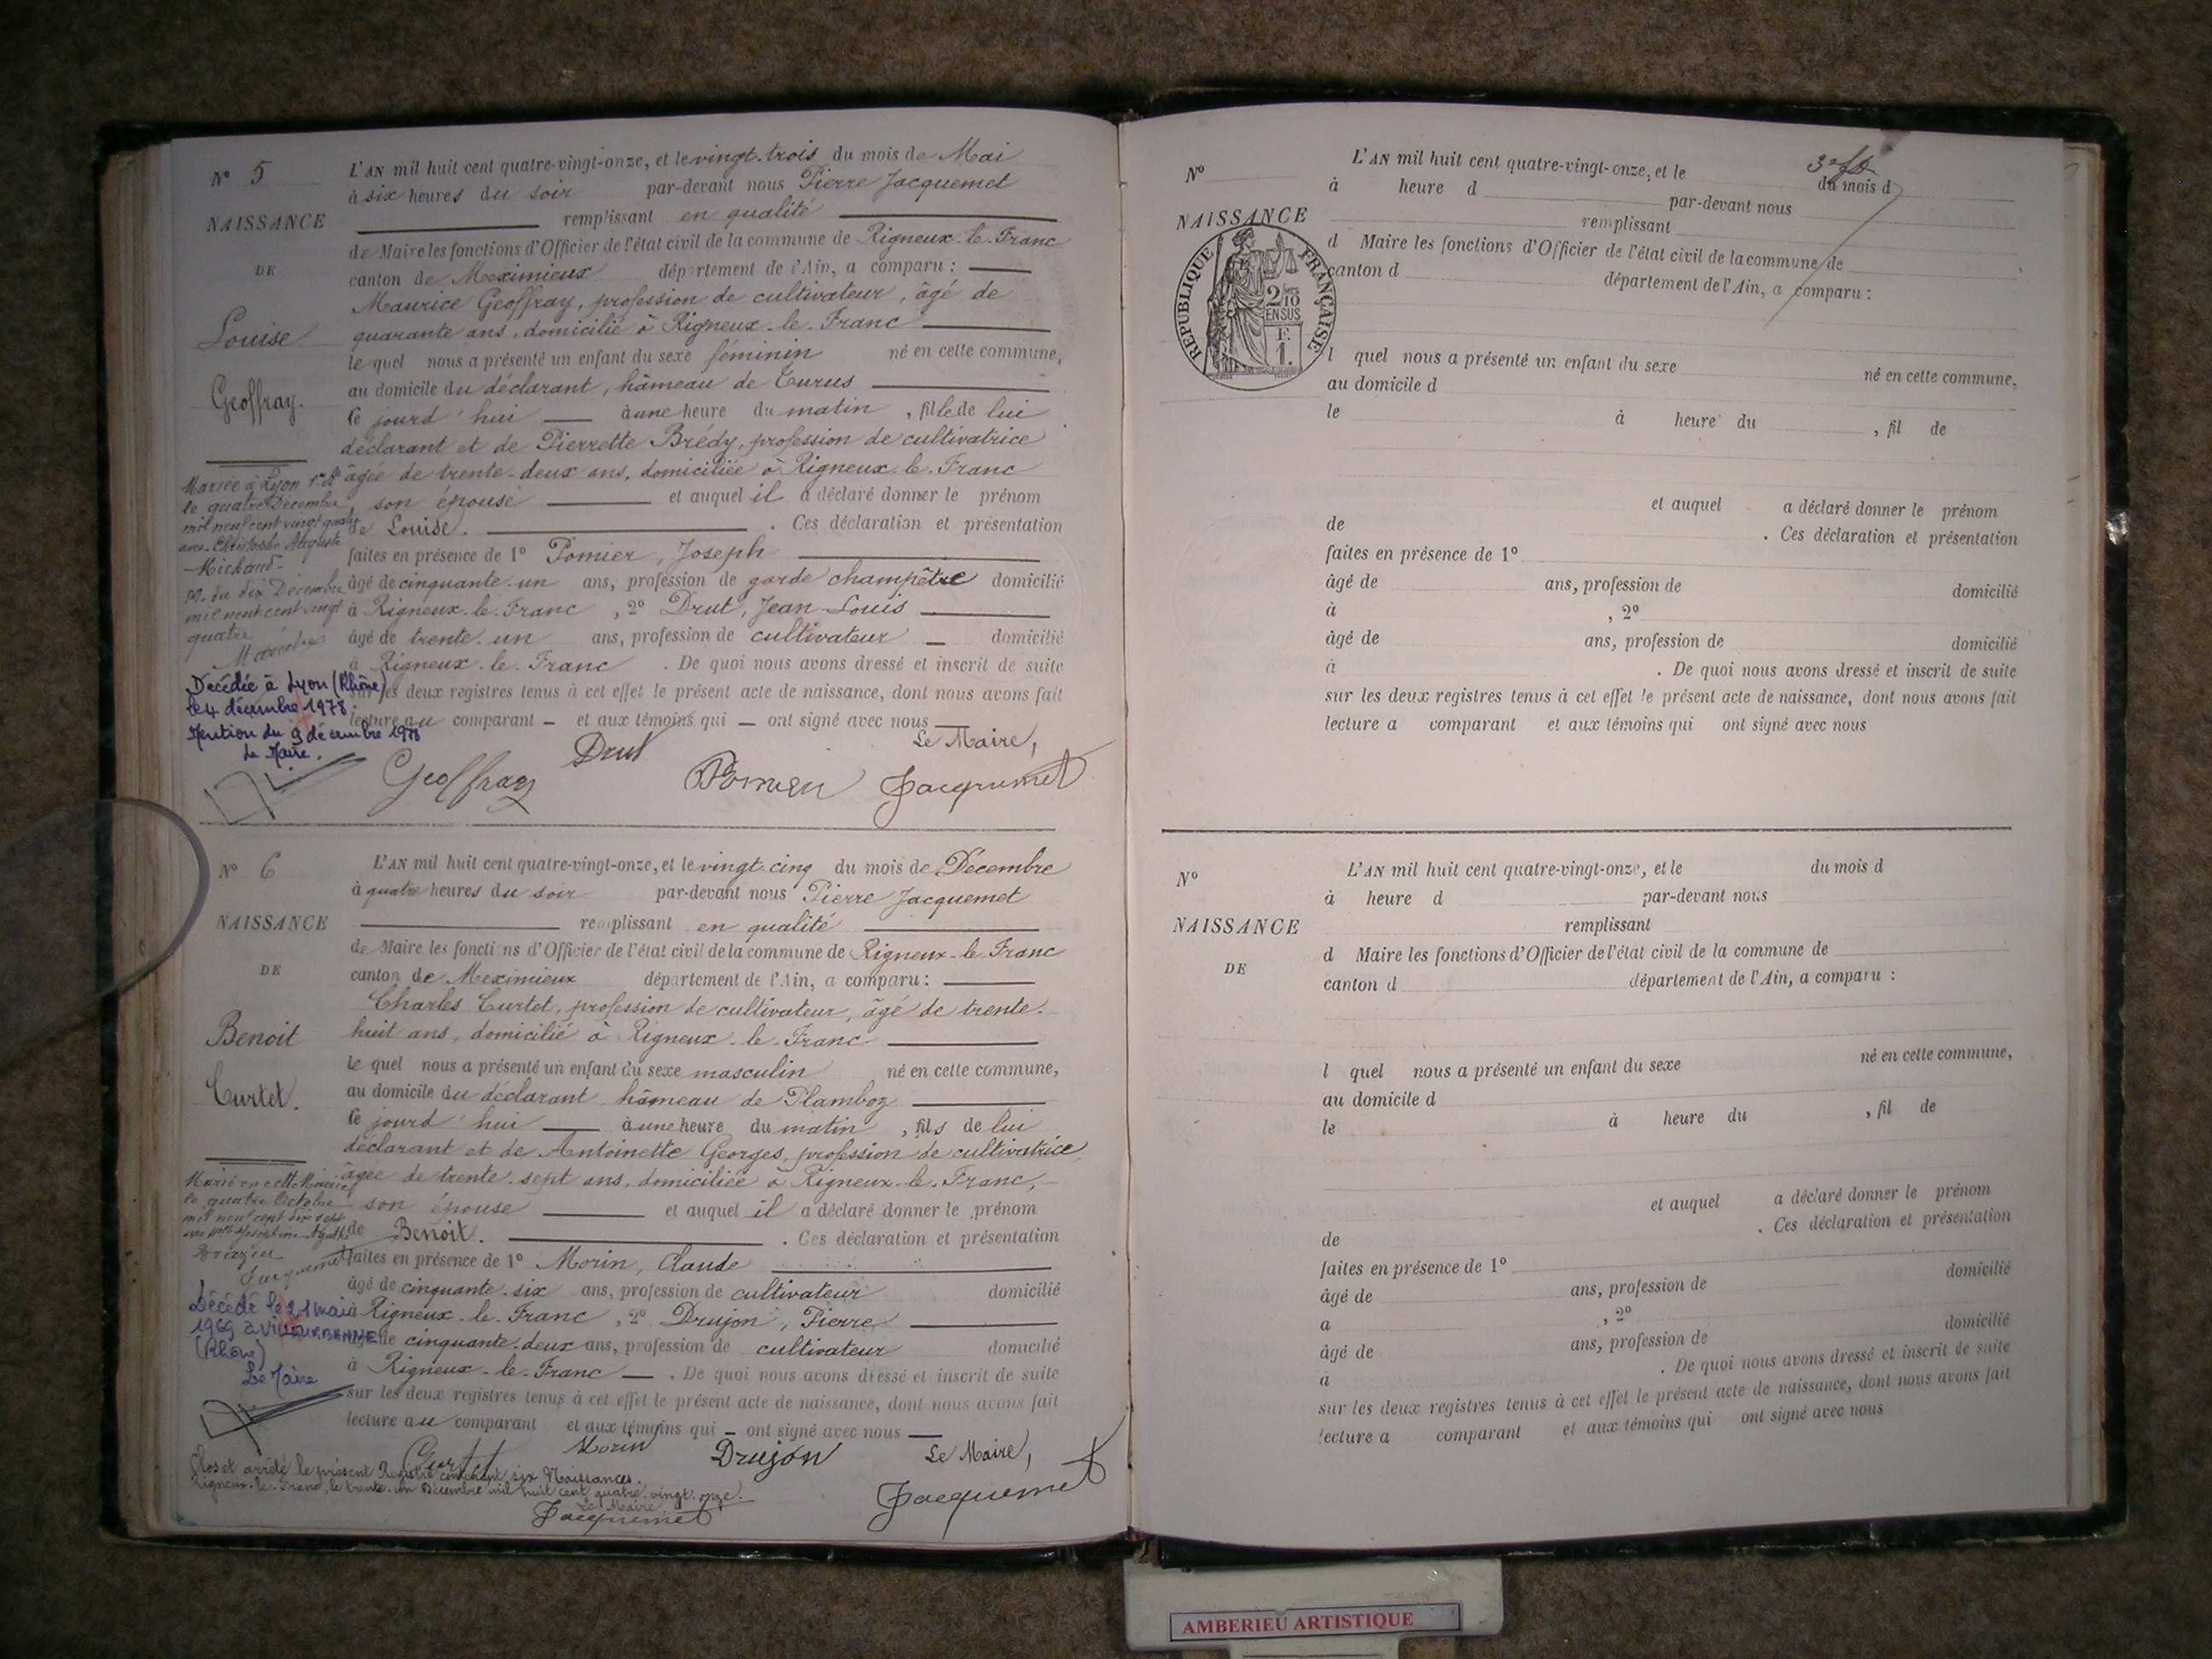 N° 5
NAISSANCE
DE
Louise
Geoffray.
L'AN mil huit cent quatre-vingt-onze, et le vingt-trois du mois de Mai
à six heures du soir par-devant nous Pierre Jacquemet
remplissant en qualité
de Maire les fonctions d'Officier de l'état civil de la commune de Rigneux-le-Franc
canton de Meximieux département de l'Ain, a comparu :
Maurice Geoffray, profession de cultivateur, âgé de
quarante ans, domicilié à Rigneux-le-Franc
le quel nous a présenté un enfant du sexe féminin né en cette commune,
au domicile du déclarant, hâmeau de Curus
le jourd'hui à une heure du matin, fille de lui
déclarant et de Pierrette Brédy, profession de cultivatrice
âgée de trente-deux ans, domiciliée à Rigneux-le-Franc
, son épouse et auquel il a déclaré donner le prénom
de Louise. . Ces déclaration et présentation
faites en présence de 1° Pomier, Joseph
âgé de cinquante-un ans, profession de garde champêtre domicilié
à Rigneux-le-Franc, 2° Drut, Jean-Louis
âgé de trente-un ans, profession de cultivateur domicilié
à Rigneux-le-Franc . De quoi nous avons dressé et inscrit de suite
sur les deux registres tenus à cet effet le présent acte de naissance, dont nous avons fait
lecture au comparant et aux témoins qui ont signé avec nous
Le Maire,
Geoffray Drut Pomier Jacquemet
Mariée à Lyon
le quatre Décembre
mil neuf cent vingt quatre
avec Christophe Auguste
Michaud
M. du dix Décembre
mil neuf cent vingt
quatre
Décédée à Lyon (Rhône)
le 4 décembre 1978.
Mention du 9 décembre 1978
Le Maire.
N° 6
NAISSANCE
DE
Benoit
Curtet.
L'AN mil huit cent quatre-vingt-onze, et le vingt-cinq du mois de Décembre
à quatre heures du soir par-devant nous Pierre Jacquemet
remplissant en qualité
de Maire les fonctions d'Officier de l'état civil de la commune de Rigneux-le-Franc
canton de Meximieux département de l'Ain, a comparu :
Charles Curtet, profession de cultivateur, âgé de trente-
huit ans, domicilié à Rigneux-le-Franc
le quel nous a présenté un enfant du sexe masculin né en cette commune,
au domicile du déclarant hâmeau de Plamboz
le jourd'hui à une heure du matin, fils de lui
déclarant et de Antoinette Georges, profession de cultivatrice,
âgée de trente-sept ans, domiciliée à Rigneux-le-Franc,
son épouse et auquel il a déclaré donner le prénom
de Benoit. . Ces déclaration et présentation
faites en présence de 1° Morin, Claude
âgé de cinquante-six ans, profession de cultivateur domicilié
à Rigneux-le-Franc, 2° Drujon, Pierre
âgé de cinquante-deux ans, profession de cultivateur domicilié
à Rigneux-le-Franc . De quoi nous avons dressé et inscrit de suite
sur les deux registres tenus à cet effet le présent acte de naissance, dont nous avons fait
lecture au comparant et aux témoins qui ont signé avec nous
Curtet Morin Drujon Le Maire,
Jacquemet
Marié en cette Mairie
le quatre Octobre
mil neuf cent dix sept
avec Mlle Joséphine Agathe
Jacquemet
Décédé le 21 mai
1969 à VILLEURBANNE
(Rhône)
Le Maire
Clos et arrêté le présent Registre contenant six Naissances.
Rigneux-le-Franc, le trente-un Décembre mil huit cent quatre-vingt-onze.
Le Maire
Jacquemet
3e f
N°
NAISSANCE
REPUBLIQUE FRANÇAISE
2/10 EN SUS
1F.
L'AN mil huit cent quatre-vingt-onze, et le du mois d
à heure d par-devant nous
remplissant
d Maire les fonctions d'Officier de l'état civil de la commune de
canton d département de l'Ain, a comparu :
l quel nous a présenté un enfant du sexe né en cette commune,
au domicile d
le à heure du , fil de
et auquel a déclaré donner le prénom
de . Ces déclaration et présentation
faites en présence de 1°
âgé de ans, profession de domicilié
à , 2°
âgé de ans, profession de domicilié
à . De quoi nous avons dressé et inscrit de suite
sur les deux registres tenus à cet effet le présent acte de naissance, dont nous avons fait
lecture a comparant et aux témoins qui ont signé avec nous
N°
NAISSANCE
DE
L'AN mil huit cent quatre-vingt-onze, et le du mois d
à heure d par-devant nous
remplissant
d Maire les fonctions d'Officier de l'état civil de la commune de
canton d département de l'Ain, a comparu :
l quel nous a présenté un enfant du sexe né en cette commune,
au domicile d
le à heure du , fil de
et auquel a déclaré donner le prénom
de . Ces déclaration et présentation
faites en présence de 1°
âgé de ans, profession de domicilié
a , 2°
âgé de ans, profession de domicilié
à . De quoi nous avons dressé et inscrit de suite
sur les deux registres tenus à cet effet le présent acte de naissance, dont nous avons fait
lecture a comparant et aux témoins qui ont signé avec nous
AMBERIEU ARTISTIQUE